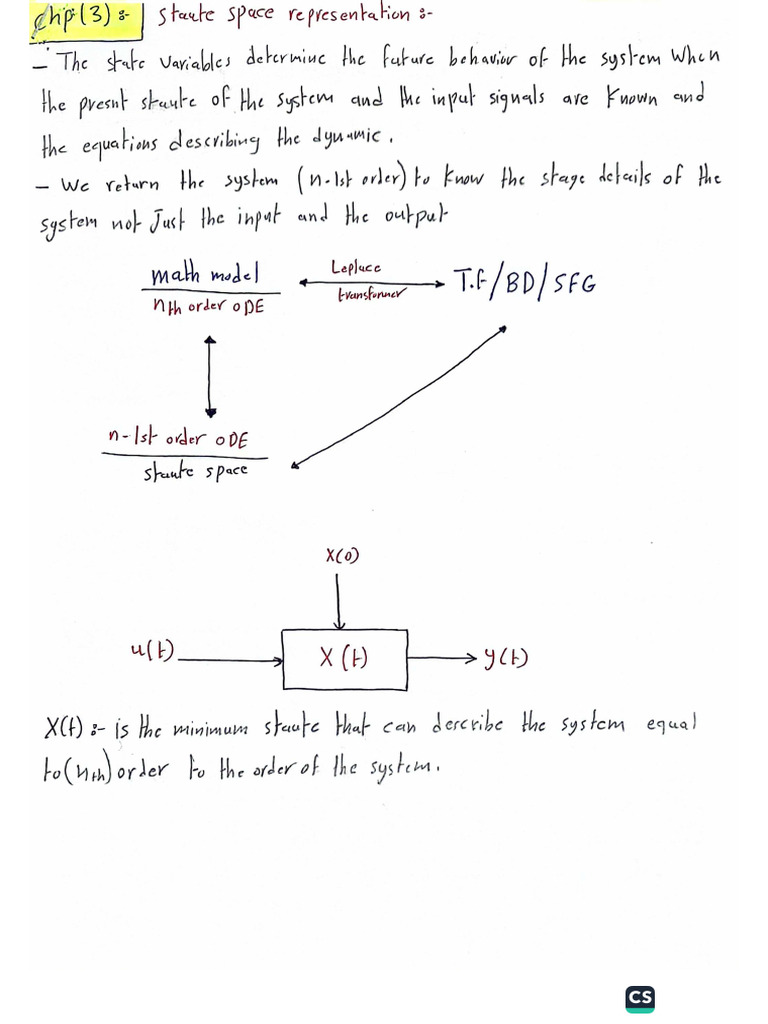 chp(3) :- staute space representation :-
- The state variables determine the future behavior of the system when
the presnt staute of the system and the input signals are known and
the equations describing the dynamic.
- We return the system (n-1st order) to know the stage details of the
system not Just the input and the output
math model
nth order ODE
Leplace
transformer
T.F/BD/SFG
n-1st order ODE
staute space
X(0)
u(t)
X(t)
y(t)
X(t) :- is the minimum staute that can describe the system equal
to (nth) order to the order of the system.
CS